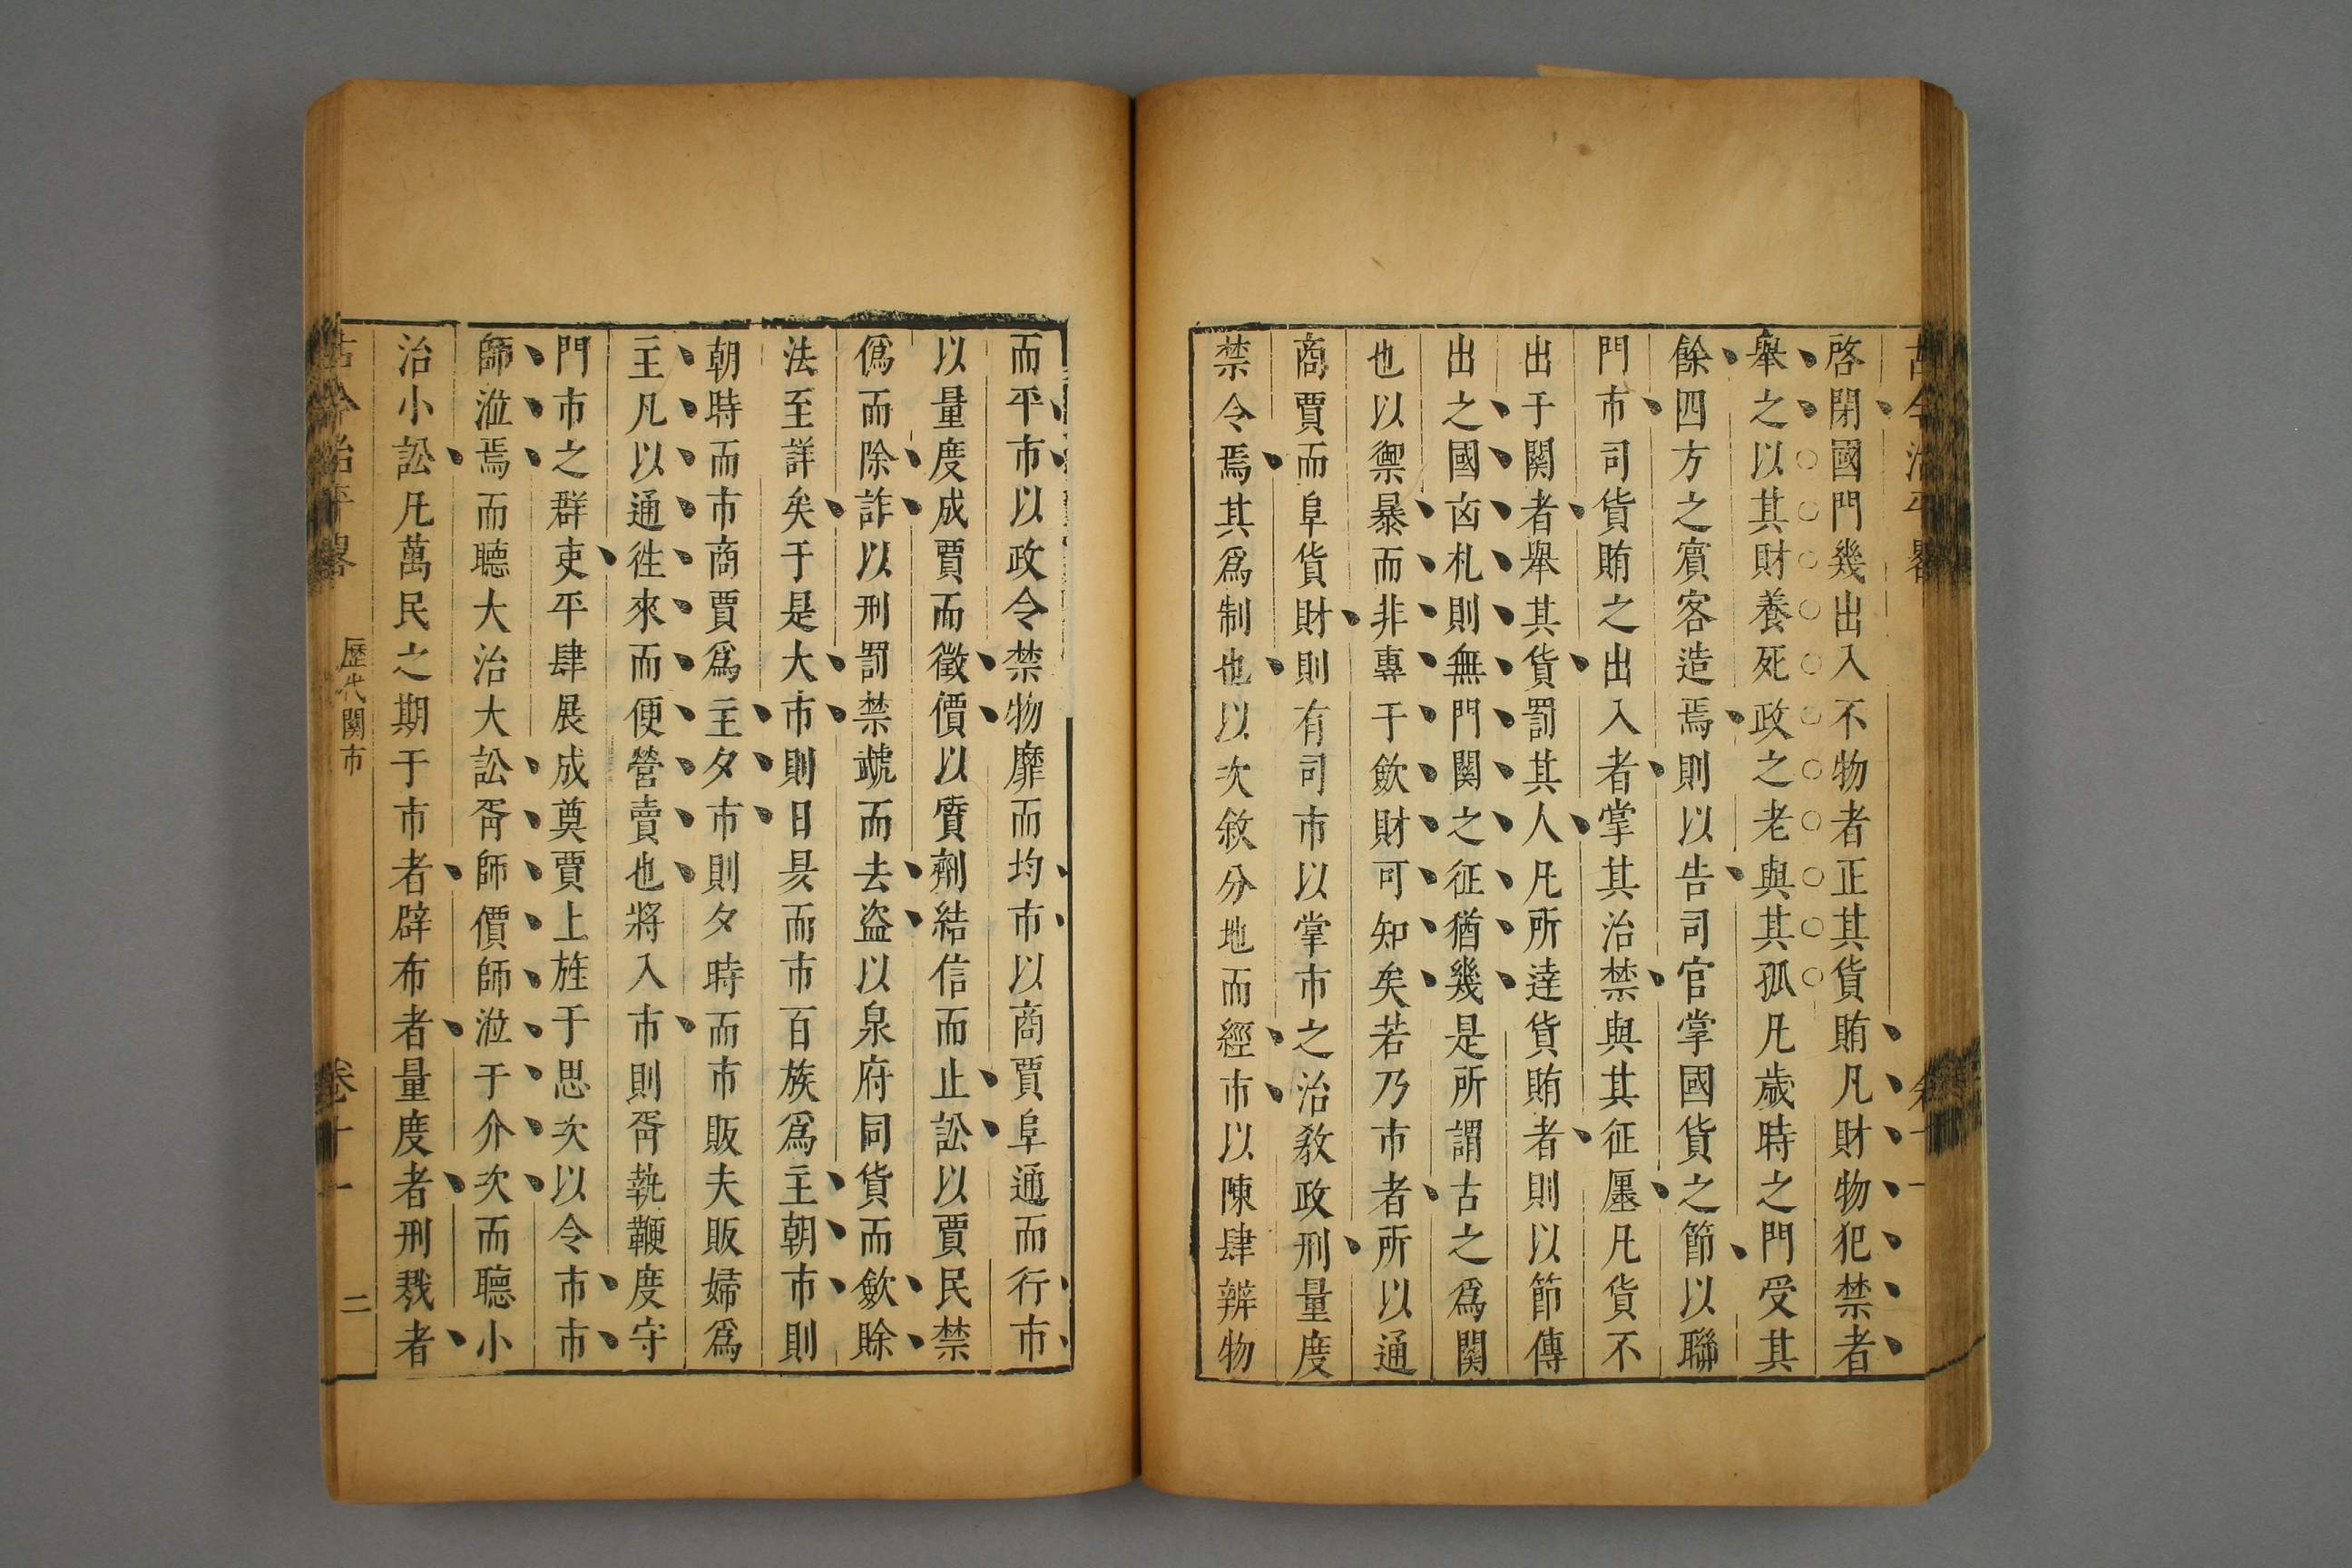 古今治平畧
啓閉國門幾出入不物者正其貨賄凡財物犯禁者
舉之以其財養死政之老與其孤凡歲時之門受其
餘四方之賓客造焉則以告司官掌國貨之節以聯
門市司貨賄之出入者掌其治禁與其征廛凡貨不
出于関者舉其貨罰其人凡所達貨賄者則以節傳
出之國凶札則無門関之征猶幾是所謂古之爲関
也以禦暴而非專于歛財可知矣若乃市者所以通
商賈而阜貨財則有司市以掌市之治教政刑量度
禁令焉其爲制也以次敘分地而經市以陳肆辨物
而平市以政令禁物靡而均市以商賈阜通而行市
以量度成賈而徵價以質劑結信而止訟以賈民禁
僞而除詐以刑罰禁虣而去盗以泉府同貨而歛賒
法至詳矣于是大市則日昃而市百族爲主朝市則
朝時而市商賈爲主夕市則夕時而市販夫販婦爲
主凡以通徃來而便營賣也將入市則胥執鞭度守
門市之群吏平肆展成奠賈上旌于思次以令市市
師涖焉而聽大治大訟胥師價師涖于介次而聽小
治小訟凡萬民之期于市者辟布者量度者刑戮者
古今治平畧 歷代関市 卷十一 二